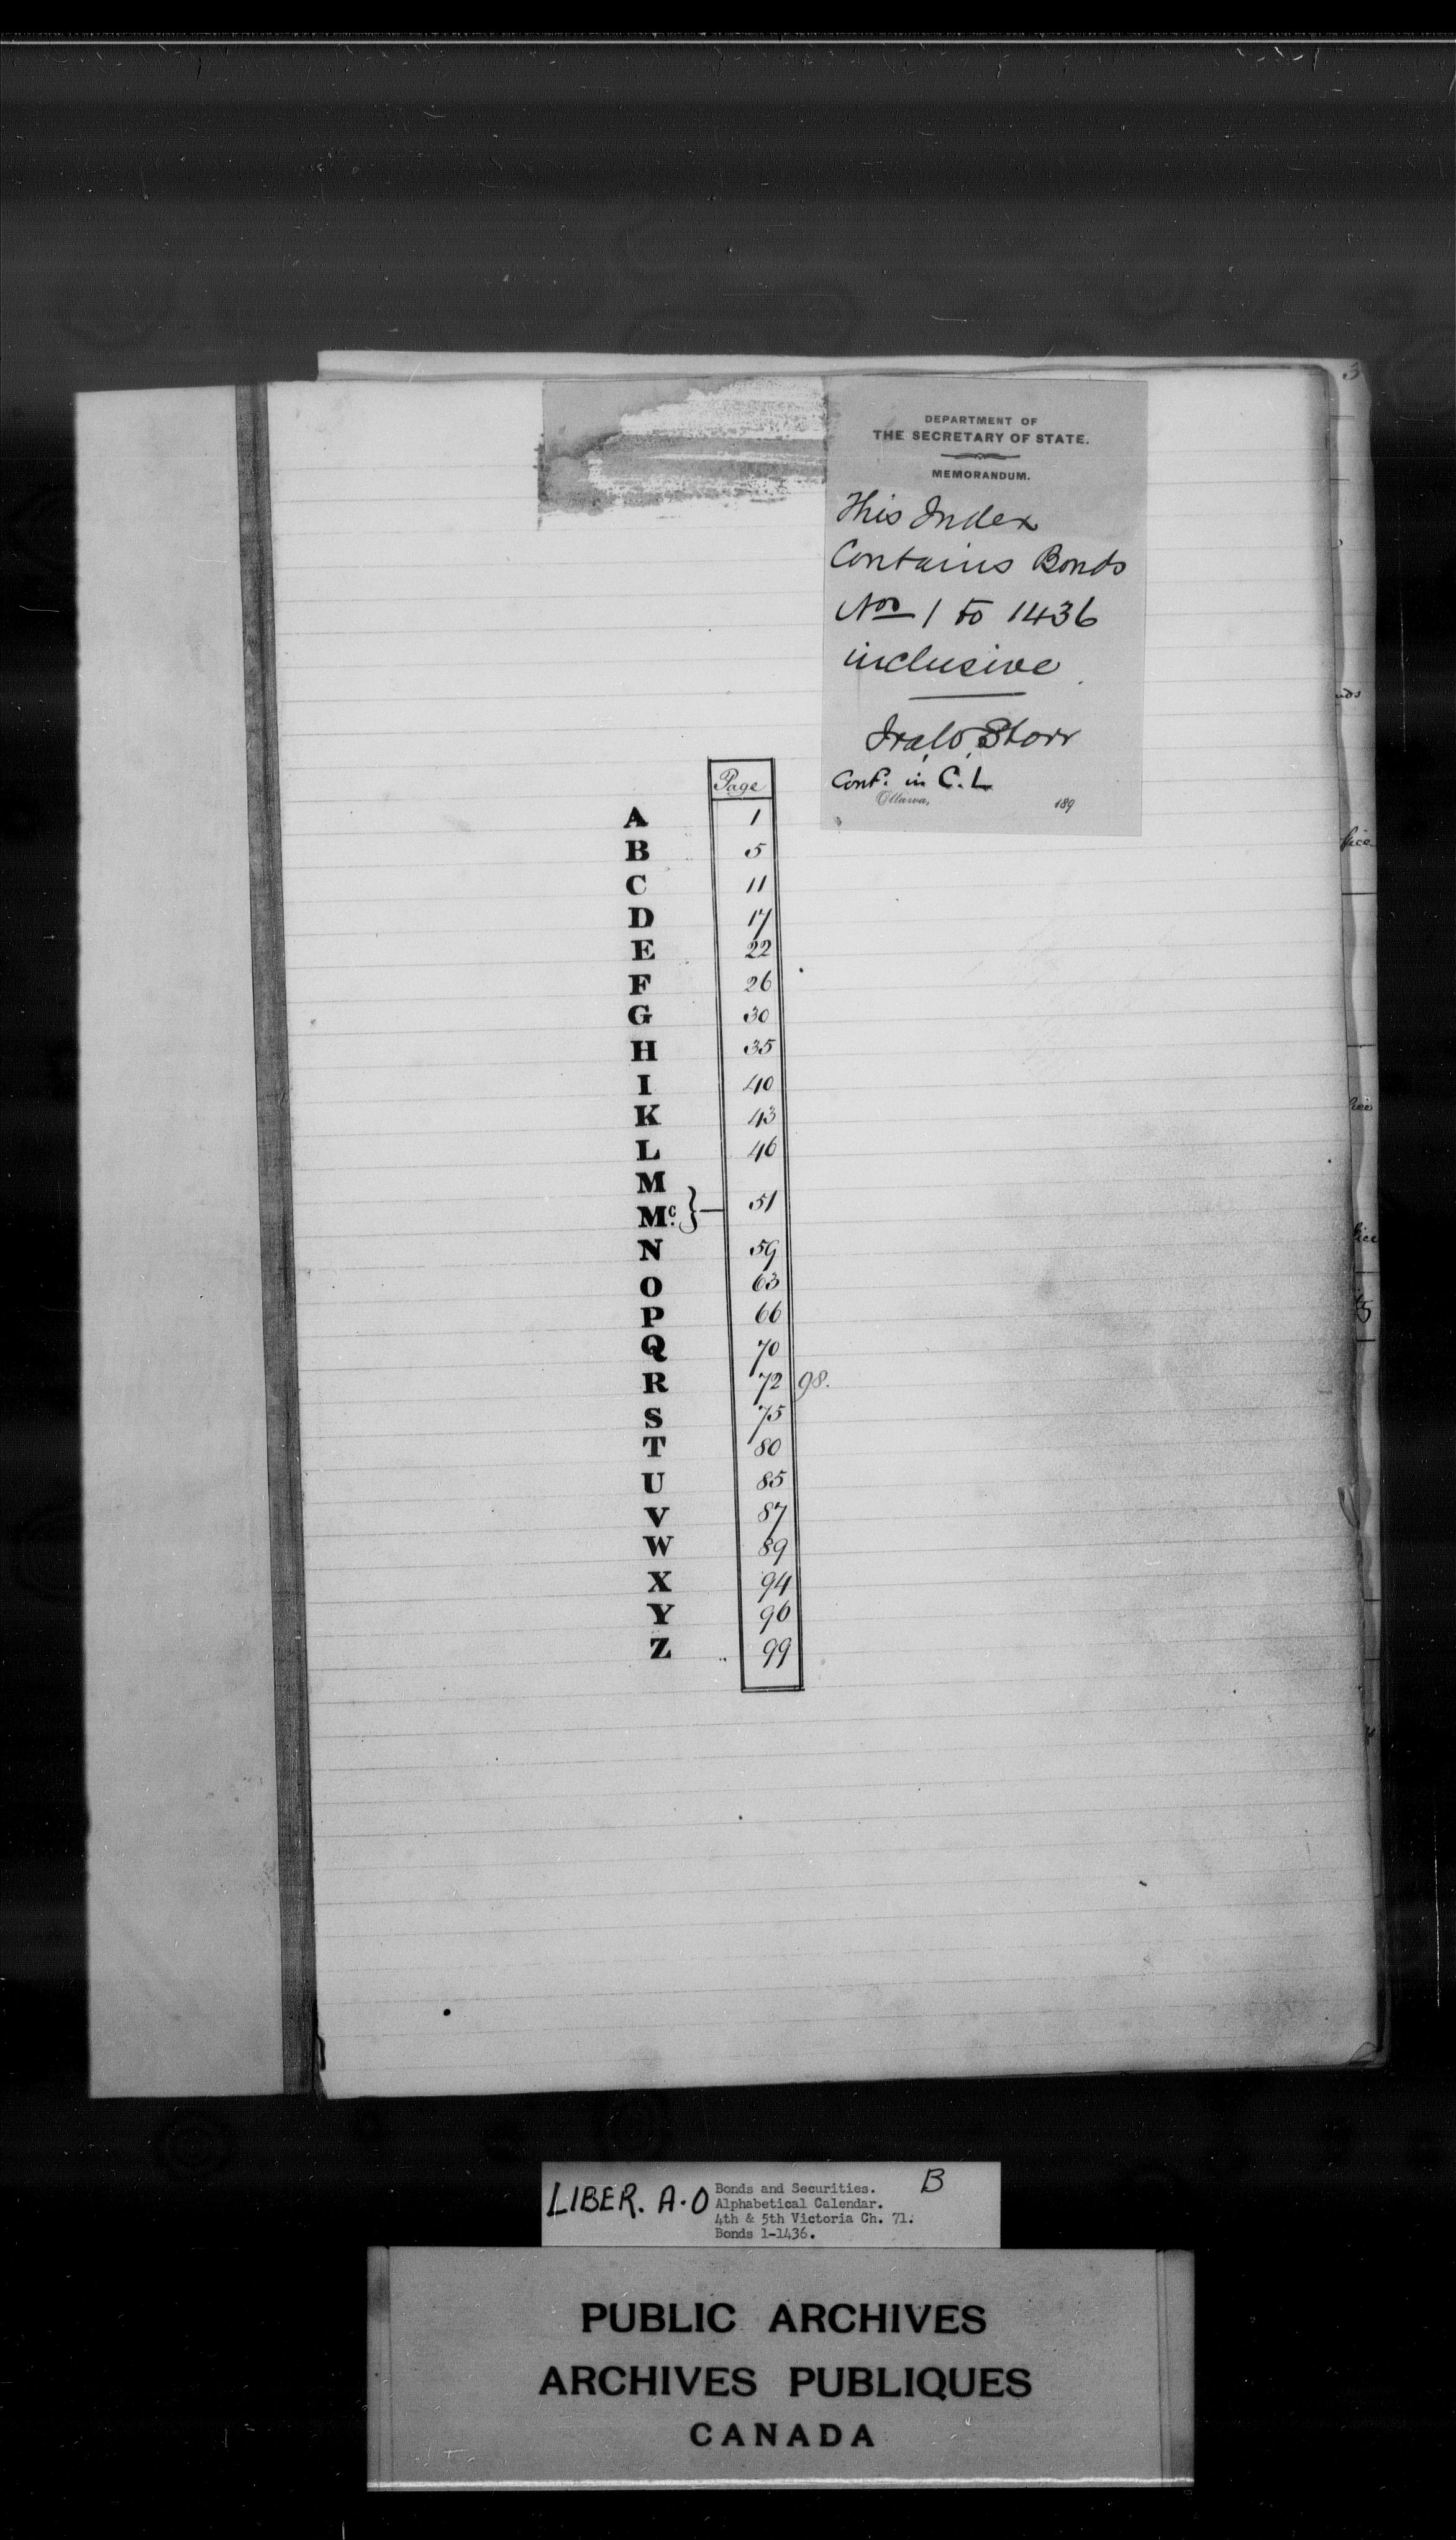 DEPARTMENT OF
THE SECRETARY OF STATE.
MEMORANDUM.
This Index
Contains Bonds
Nos 1 to 1436
inclusive
Storr
Cont. in C. L
Ottawa, 189
Page
A 1
B 5
C 11
D 17
E 22
F 26
G 30
H 35
I 40
K 43
L 46
M
Mc. } — 51
N 59
O 63
P 66
Q 70
R 72 98.
S 75
T 80
U 85
V 87
W 89
X 94
Y 96
Z 99
3
LIBER. A.O
Bonds and Securities. B
Alphabetical Calendar.
4th & 5th Victoria Ch. 71.
Bonds 1-1436.
PUBLIC ARCHIVES
ARCHIVES PUBLIQUES
CANADA